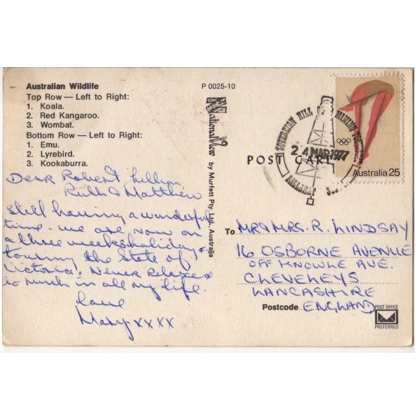 Australian Wildlife
Top Row — Left to Right:
1. Koala.
2. Red Kangaroo.
3. Wombat.
Bottom Row — Left to Right:
1. Emu.
2. Lyrebird.
3. Kookaburra.
P 0025-10
NationalView
by Murfett Pty. Ltd. Australia
POST CARD
SOVEREIGN HILL
24 MAR 1977
BALLARAT
Australia 25
Dear Robert
& Matthew
Still having a wonderful
time. We are now on
a three weeks holiday
touring the State of
Victoria. Never relaxed
so much in all my life.
Love
Mary xxxx
To MR & MRS. R. LINDSAY
16 OSBORNE AVENUE
OFF KNOWLE AVE.
CLEVELEYS
LANCASHIRE
Postcode ENGLAND
POST OFFICE
PREFERRED